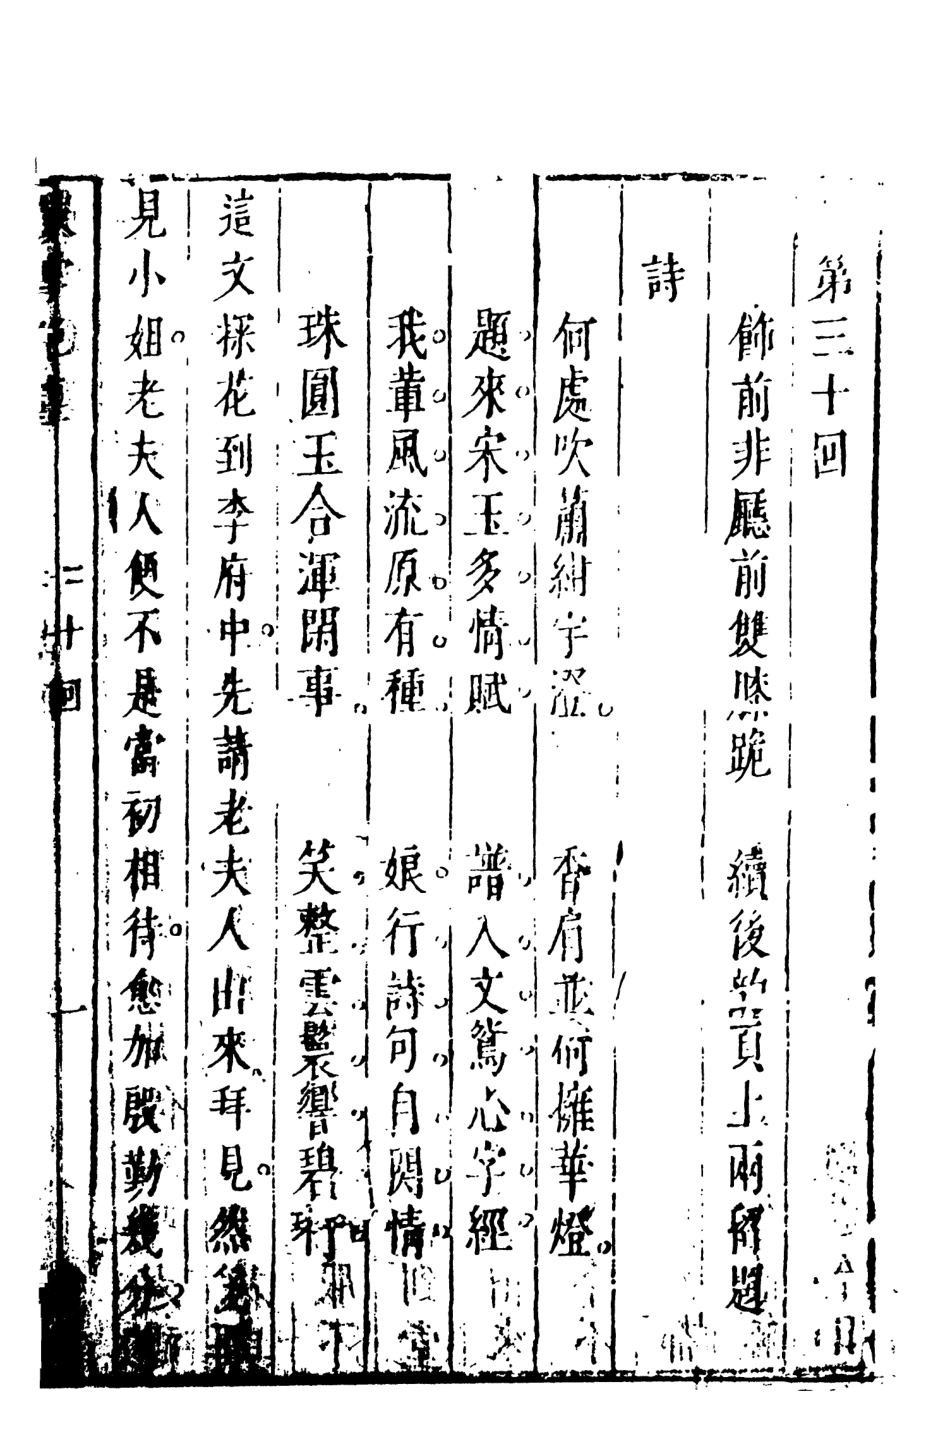 第三十回
飾前非廳前雙膝跪　續後 上兩留題
詩
何處吹簫紺字澀　香肩並倚擁華燈
題來宋玉多情賦　譜入文鴛心字經
我輩風流原有種　娘行詩句自關情
珠圓玉合渾閑事　笑整雲鬟響碧
這文探花到李府中先請老夫人出來拜見然
見小姐老夫人便不是當初相待愈加殷勤幾分
二十回